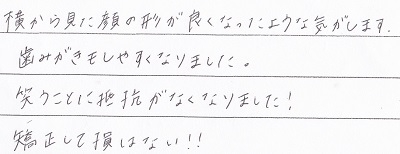 横から見た顔の形が良くなったような気がします.
歯みがきもしやすくなりました。
笑うことに抵抗がなくなりました!
矯正して損はない!!